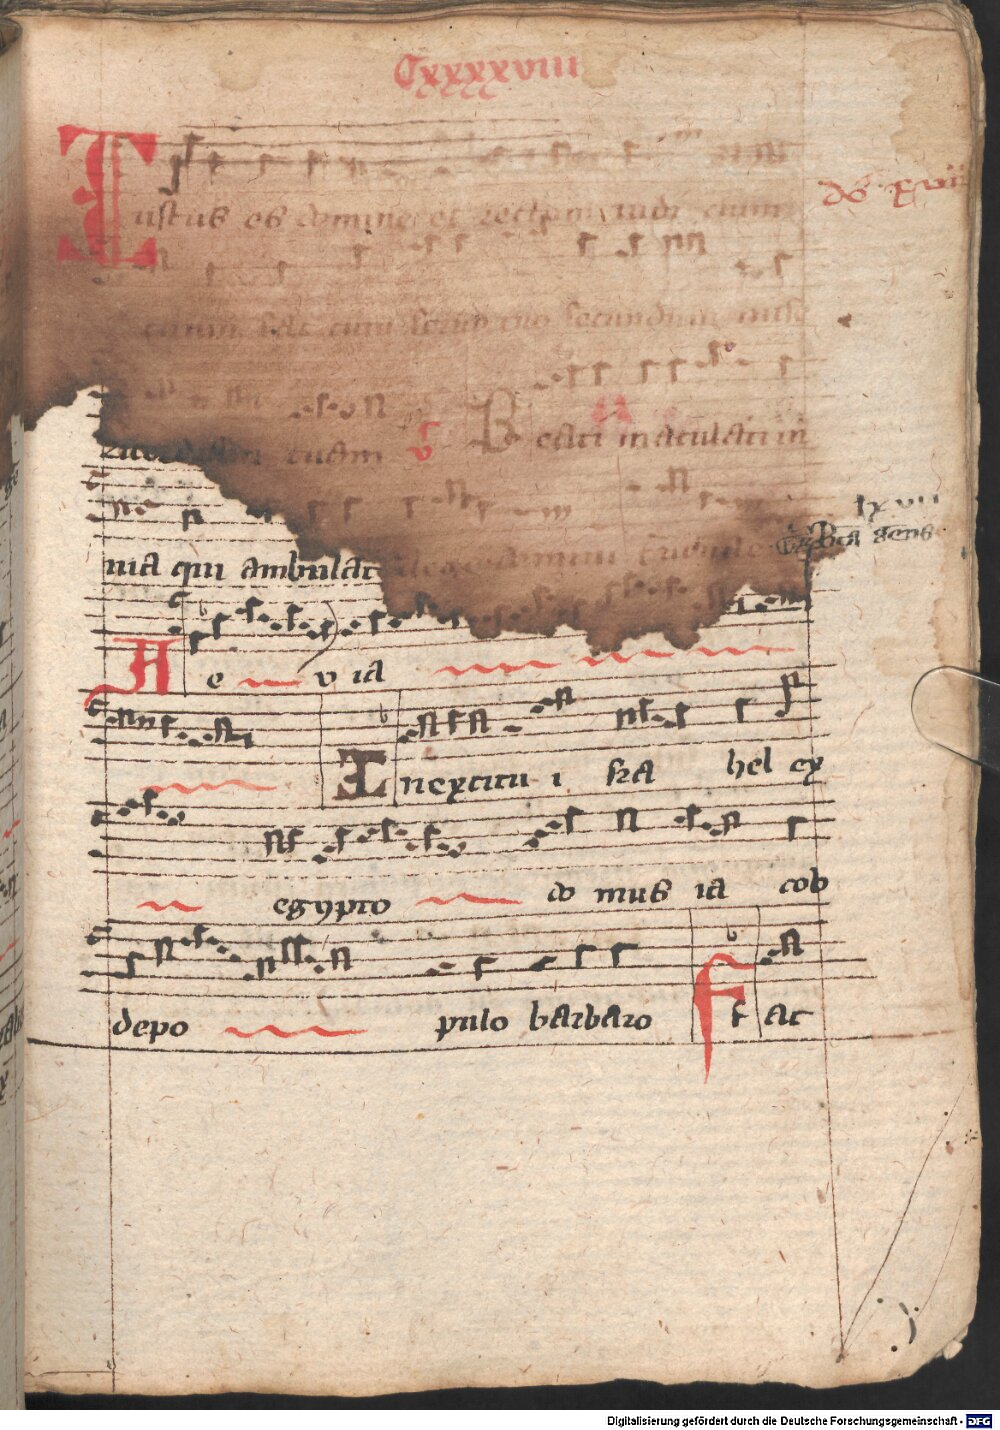 Cxxxxviii
Iustus es domine et rectum iudi cium
do xvii
tuum fac cum seruo tuo secundum mise
ricordiam tuam v Beati in maculati in
lxvii
Beata gens
uia qui ambulāt lege domini
A e v ia
In exitu i sra hel ex
egypto do mus ia cob
depo pulo barbaro F f ac
Digitalisierung gefördert durch die Deutsche Forschungsgemeinschaft - DFG